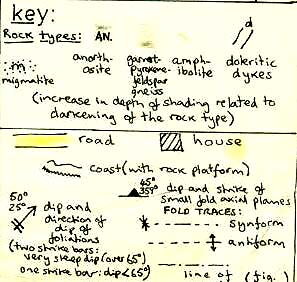 key:
Rock types: AN. d
migmatite
anorth-
osite
garnet-
pyroxene-
feldspar
gneiss
amph-
ibolite
doleritic
dykes
(increase in depth of shading related to
darkening of the rock type)
road
house
coast (with rock platform)
50°
25°
dip and
direction of
dip of
foliations
(two strike bars:
very steep dip (over 65°)
one strike bar: dip<65°)
45°
359°
dip and strike of
small fold axial planes
FOLD TRACES:
synform
antiform
line of (fig. )